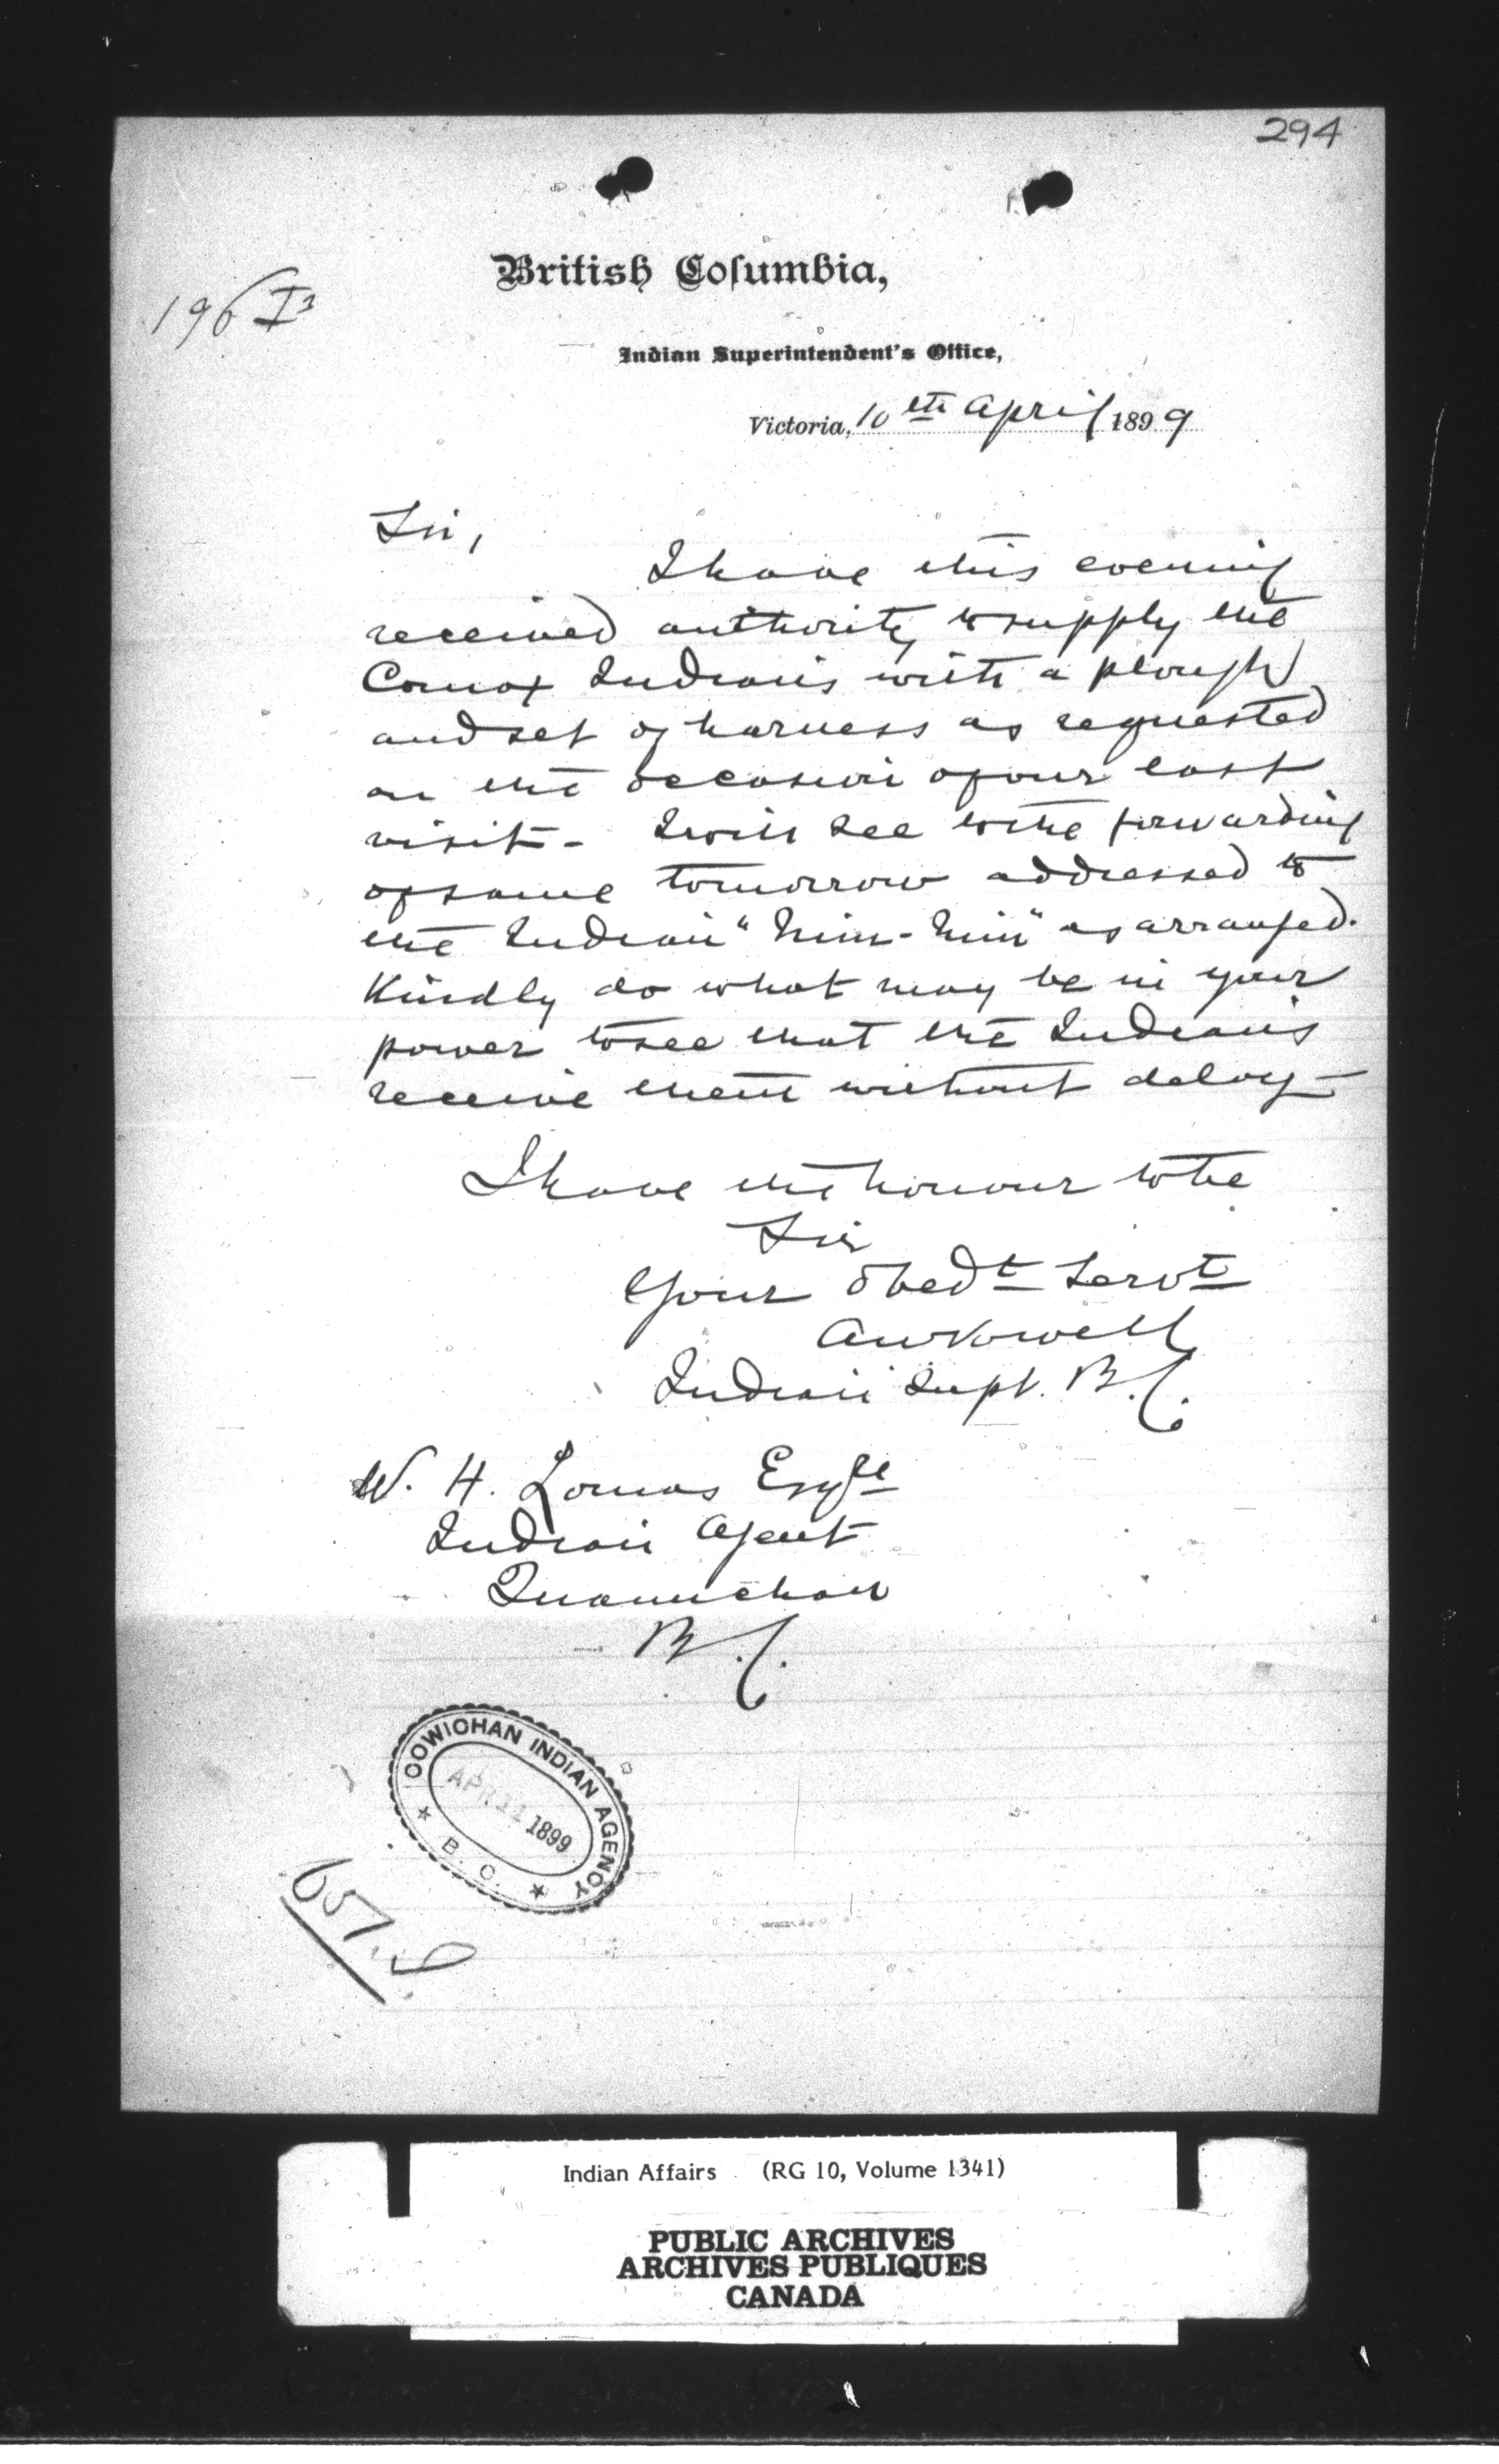 294
British Columbia,
196
Indian Superintendent's Office,
Victoria, 10th April 1899
Sir,
I have this evening
received authority to supply the
Comox Indians with a plough
and set of harness as requested
on the occasion of our last
visit - I will see to the forwarding
of same tomorrow addressed to
the Indian " " as arranged.
Kindly do what may be in your
power to see that the Indians
receive them without delay -
I have the honour to be
Sir
Your obedt Servt
AWVowell
Indian Supt. B.C.
W. H. Lomas Esqre
Indian Agent
Quamichan
B.C.
COWICHAN INDIAN AGENCY
APR 11 1899
B. C.
657
Indian Affairs (RG 10, Volume 1341)
PUBLIC ARCHIVES
ARCHIVES PUBLIQUES
CANADA